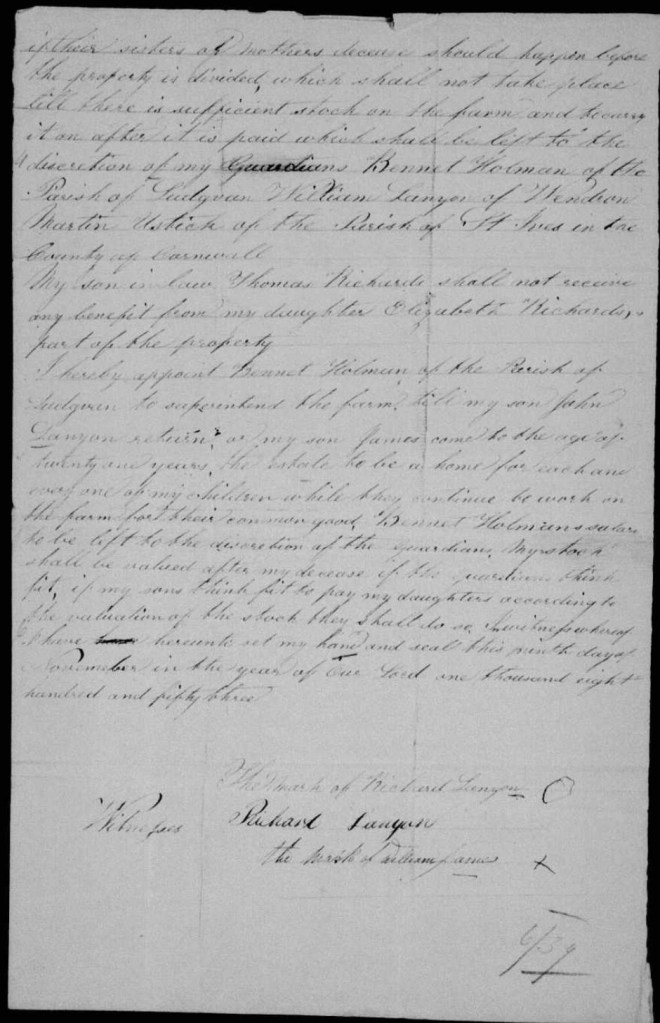 if their sisters or mothers decease should happen before
the property is divided, which shall not take place
till there is sufficient stock on the farm and to carry
it on after it is paid which shall be left to the
discretion of my Guardians Bennet Holman of the
Parish of Ludgvan William Lanyon of Wendron
Martin Ustick of the Parish of St Ives in the
County of Cornwall
My son in law Thomas Richards shall not receive
any benefit from my daughter Elizabeth Richards,
part of the property
I hereby appoint Bennet Holman of the Parish of
Ludgvan to superintend the farm till my son John
Lanyon return, or my son James come to the age of
twenty one years, the estate to be a home for each and
every one of my children while they continue to work on
the farm for their common good, Bennet Holmans salary
to be left to the discretion of the guardians, My stock
shall be valued after my decease if the guardians think
fit, if my sons think fit to pay my daughters according to
the valuation of the stock they shall do so In witness whereof
I have hereunto set my hand and seal this ninth day of
Novemeber in the year of Our Lord one thousand eight
hundred and fifty three
The mark of Richard Lanyon O
Witnesses Richard Lanyon
the mark of William James X